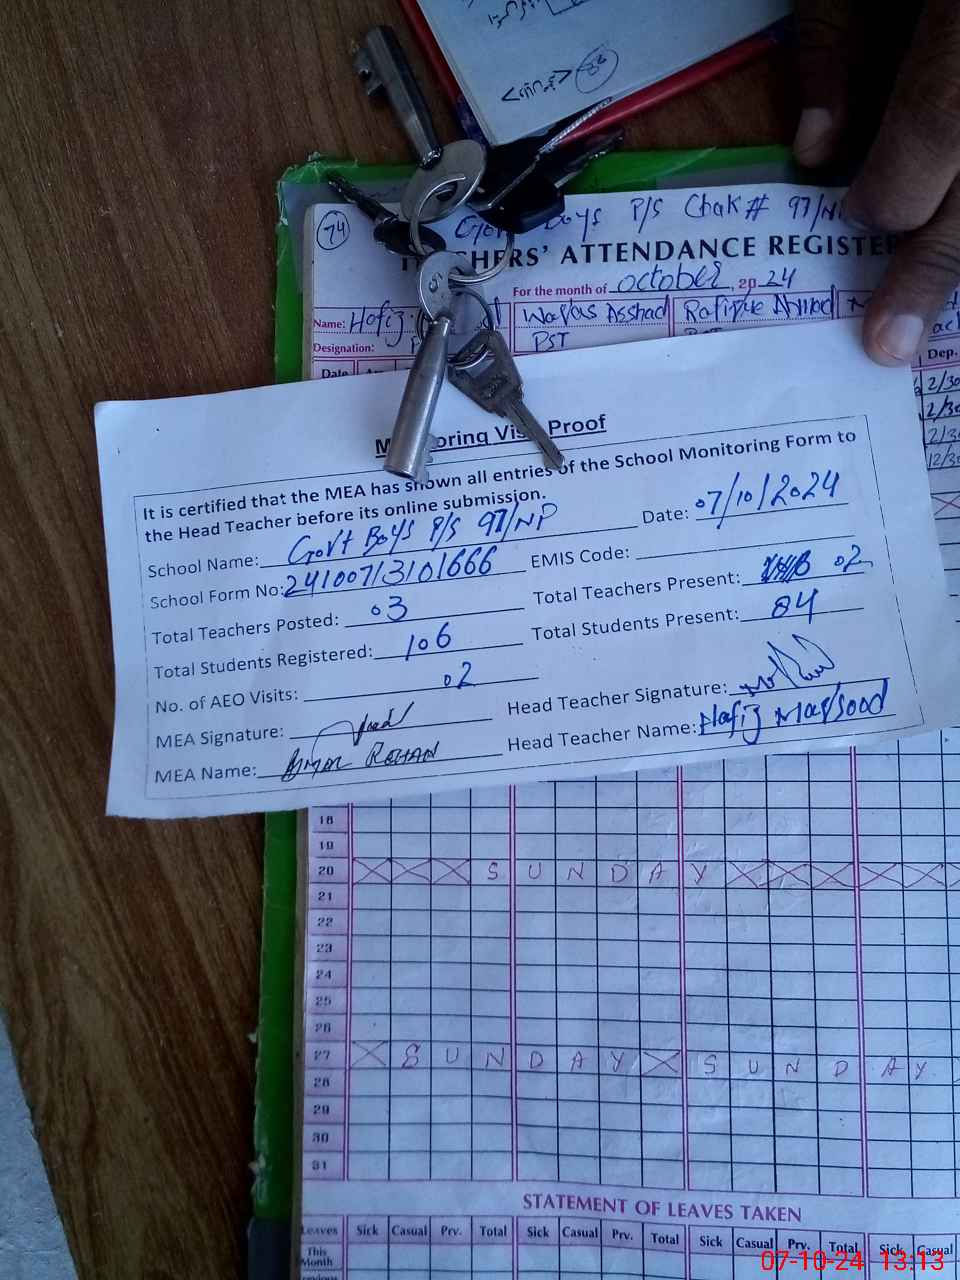 74
Boys P/S Chak # 97/NP
TEACHERS' ATTENDANCE REGISTER
For the month of October, 2024
Name: Hafiz Waqas Arshad Rafique Ahmad
Designation: PST
Date Dep.
2/30
2/30
2/30
12/30
Monitoring Visit Proof
It is certified that the MEA has shown all entries of the School Monitoring Form to
the Head Teacher before its online submission.
School Name: Govt Boys P/S 97/NP Date: 07/10/2024
School Form No: 24100713101666 EMIS Code:
Total Teachers Posted: 03 Total Teachers Present: 02
Total Students Registered: 106 Total Students Present: 84
No. of AEO Visits: 02 Head Teacher Signature:
MEA Signature: Head Teacher Name: Hafiz Maqsood
MEA Name: Umar Rehan
18
19
20 S U N D A Y
21
22
23
24
25
26
27 S U N D A Y S U N D A Y
28
29
30
31
STATEMENT OF LEAVES TAKEN
Leaves Sick Casual Prv. Total Sick Casual Prv. Total Sick Casual Prv. Total Sick Casual
This Month
07-10-24 13:13